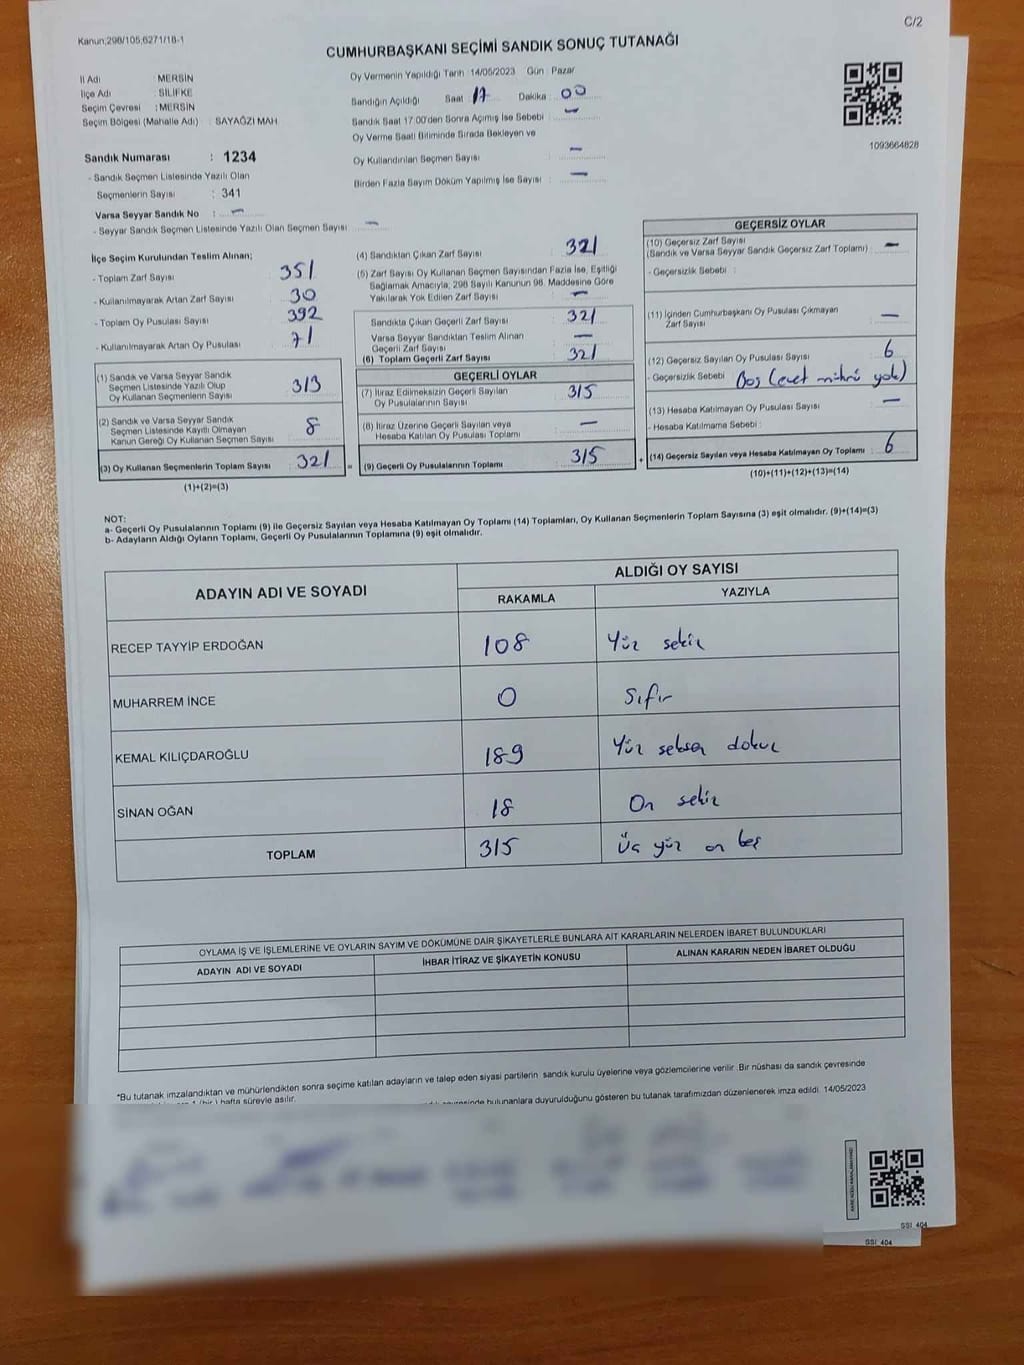 C/2
Kanun;298/105,6271/18-1
CUMHURBAŞKANI SEÇİMİ SANDIK SONUÇ TUTANAĞI
İl Adı : MERSİN
İlçe Adı : SİLİFKE
Seçim Çevresi : MERSİN
Seçim Bölgesi (Mahalle Adı) : SAYAĞZI MAH
Oy Vermenin Yapıldığı Tarih :14/05/2023 Gün : Pazar
Sandığın Açıldığı Saat 17 Dakika : 00
Sandık Saat 17:00'den Sonra Açımış İse Sebebi : –
Oy Verme Saati Bitiminde Sırada Bekleyen ve
Oy Kullandırılan Seçmen Sayısı : –
Birden Fazla Sayım Döküm Yapılmış İse Sayısı : –
1093664828
Sandık Numarası : 1234
- Sandık Seçmen Listesinde Yazılı Olan
Seçmenlerin Sayısı : 341
Varsa Seyyar Sandık No : –
- Seyyar Sandık Seçmen Listesinde Yazılı Olan Seçmen Sayısı : –
İlçe Seçim Kurulundan Teslim Alınan;
- Toplam Zarf Sayısı : 351
- Kullanılmayarak Artan Zarf Sayısı : 30
- Toplam Oy Pusulası Sayısı : 392
- Kullanılmayarak Artan Oy Pusulası : 71
(1) Sandık ve Varsa Seyyar Sandık
Seçmen Listesinde Yazılı Olup
Oy Kullanan Seçmenlerin Sayısı : 313
(2) Sandık ve Varsa Seyyar Sandık
Seçmen Listesinde Kayıtlı Olmayan
Kanun Gereği Oy Kullanan Seçmen Sayısı : 8
(3) Oy Kullanan Seçmenlerin Toplam Sayısı : 321 =
(1)+(2)=(3)
(4) Sandıktan Çıkan Zarf Sayısı : 321
(5) Zarf Sayısı Oy Kullanan Seçmen Sayısından Fazla İse, Eşitliği
Sağlamak Amacıyla, 298 Sayılı Kanunun 98. Maddesine Göre
Yakılarak Yok Edilen Zarf Sayısı : –
Sandıkta Çıkan Geçerli Zarf Sayısı : 321
Varsa Seyyar Sandıktan Teslim Alınan
Geçerli Zarf Sayısı : –
(6) Toplam Geçerli Zarf Sayısı : 321
GEÇERLİ OYLAR
(7) İtiraz Edilmeksizin Geçerli Sayılan
Oy Pusulalarının Sayısı : 315
(8) İtiraz Üzerine Geçerli Sayılan veya
Hesaba Katılan Oy Pusulası Toplamı : –
(9) Geçerli Oy Pusulalarının Toplamı : 315 +
GEÇERSİZ OYLAR
(10) Geçersiz Zarf Sayısı
(Sandık ve Varsa Seyyar Sandık Geçersiz Zarf Toplamı) : –
- Geçersizlik Sebebi :
(11) İçinden Cumhurbaşkanı Oy Pusulası Çıkmayan
Zarf Sayısı : –
(12) Geçersiz Sayılan Oy Pusulası Sayısı : 6
- Geçersizlik Sebebi : Boş (evet mührü yok)
(13) Hesaba Katılmayan Oy Pusulası Sayısı : –
- Hesaba Katılmama Sebebi :
(14) Geçersiz Sayılan veya Hesaba Katılmayan Oy Toplamı : 6
(10)+(11)+(12)+(13)=(14)
NOT:
a- Geçerli Oy Pusulalarının Toplamı (9) ile Geçersiz Sayılan veya Hesaba Katılmayan Oy Toplamı (14) Toplamları, Oy Kullanan Seçmenlerin Toplam Sayısına (3) eşit olmalıdır. (9)+(14)=(3)
b- Adayların Aldığı Oyların Toplamı, Geçerli Oy Pusulalarının Toplamına (9) eşit olmalıdır.
ADAYIN ADI VE SOYADI
ALDIĞI OY SAYISI
RAKAMLA YAZIYLA
RECEP TAYYİP ERDOĞAN 108 Yüz sekiz
MUHARREM İNCE 0 Sıfır
KEMAL KILIÇDAROĞLU 189 Yüz seksen dokuz
SİNAN OĞAN 18 On sekiz
TOPLAM 315 Üç yüz on beş
OYLAMA İŞ VE İŞLEMLERİNE VE OYLARIN SAYIM VE DÖKÜMÜNE DAİR ŞİKAYETLERLE BUNLARA AİT KARARLARIN NELERDEN İBARET BULUNDUKLARI
ADAYIN ADI VE SOYADI İHBAR İTİRAZ VE ŞİKAYETİN KONUSU ALINAN KARARIN NEDEN İBARET OLDUĞU
*Bu tutanak imzalandıktan ve mühürlendikten sonra seçime katılan adayların ve talep eden siyasi partilerin sandık kurulu üyelerine veya gözlemcilerine verilir .Bir nüshası da sandık çevresinde
1 (bir ) hafta süreyle asılır. bulunanlara duyurulduğunu gösteren bu tutanak tarafımızdan düzenlenerek imza edildi. 14/05/2023
SSİ_404
SSİ_404